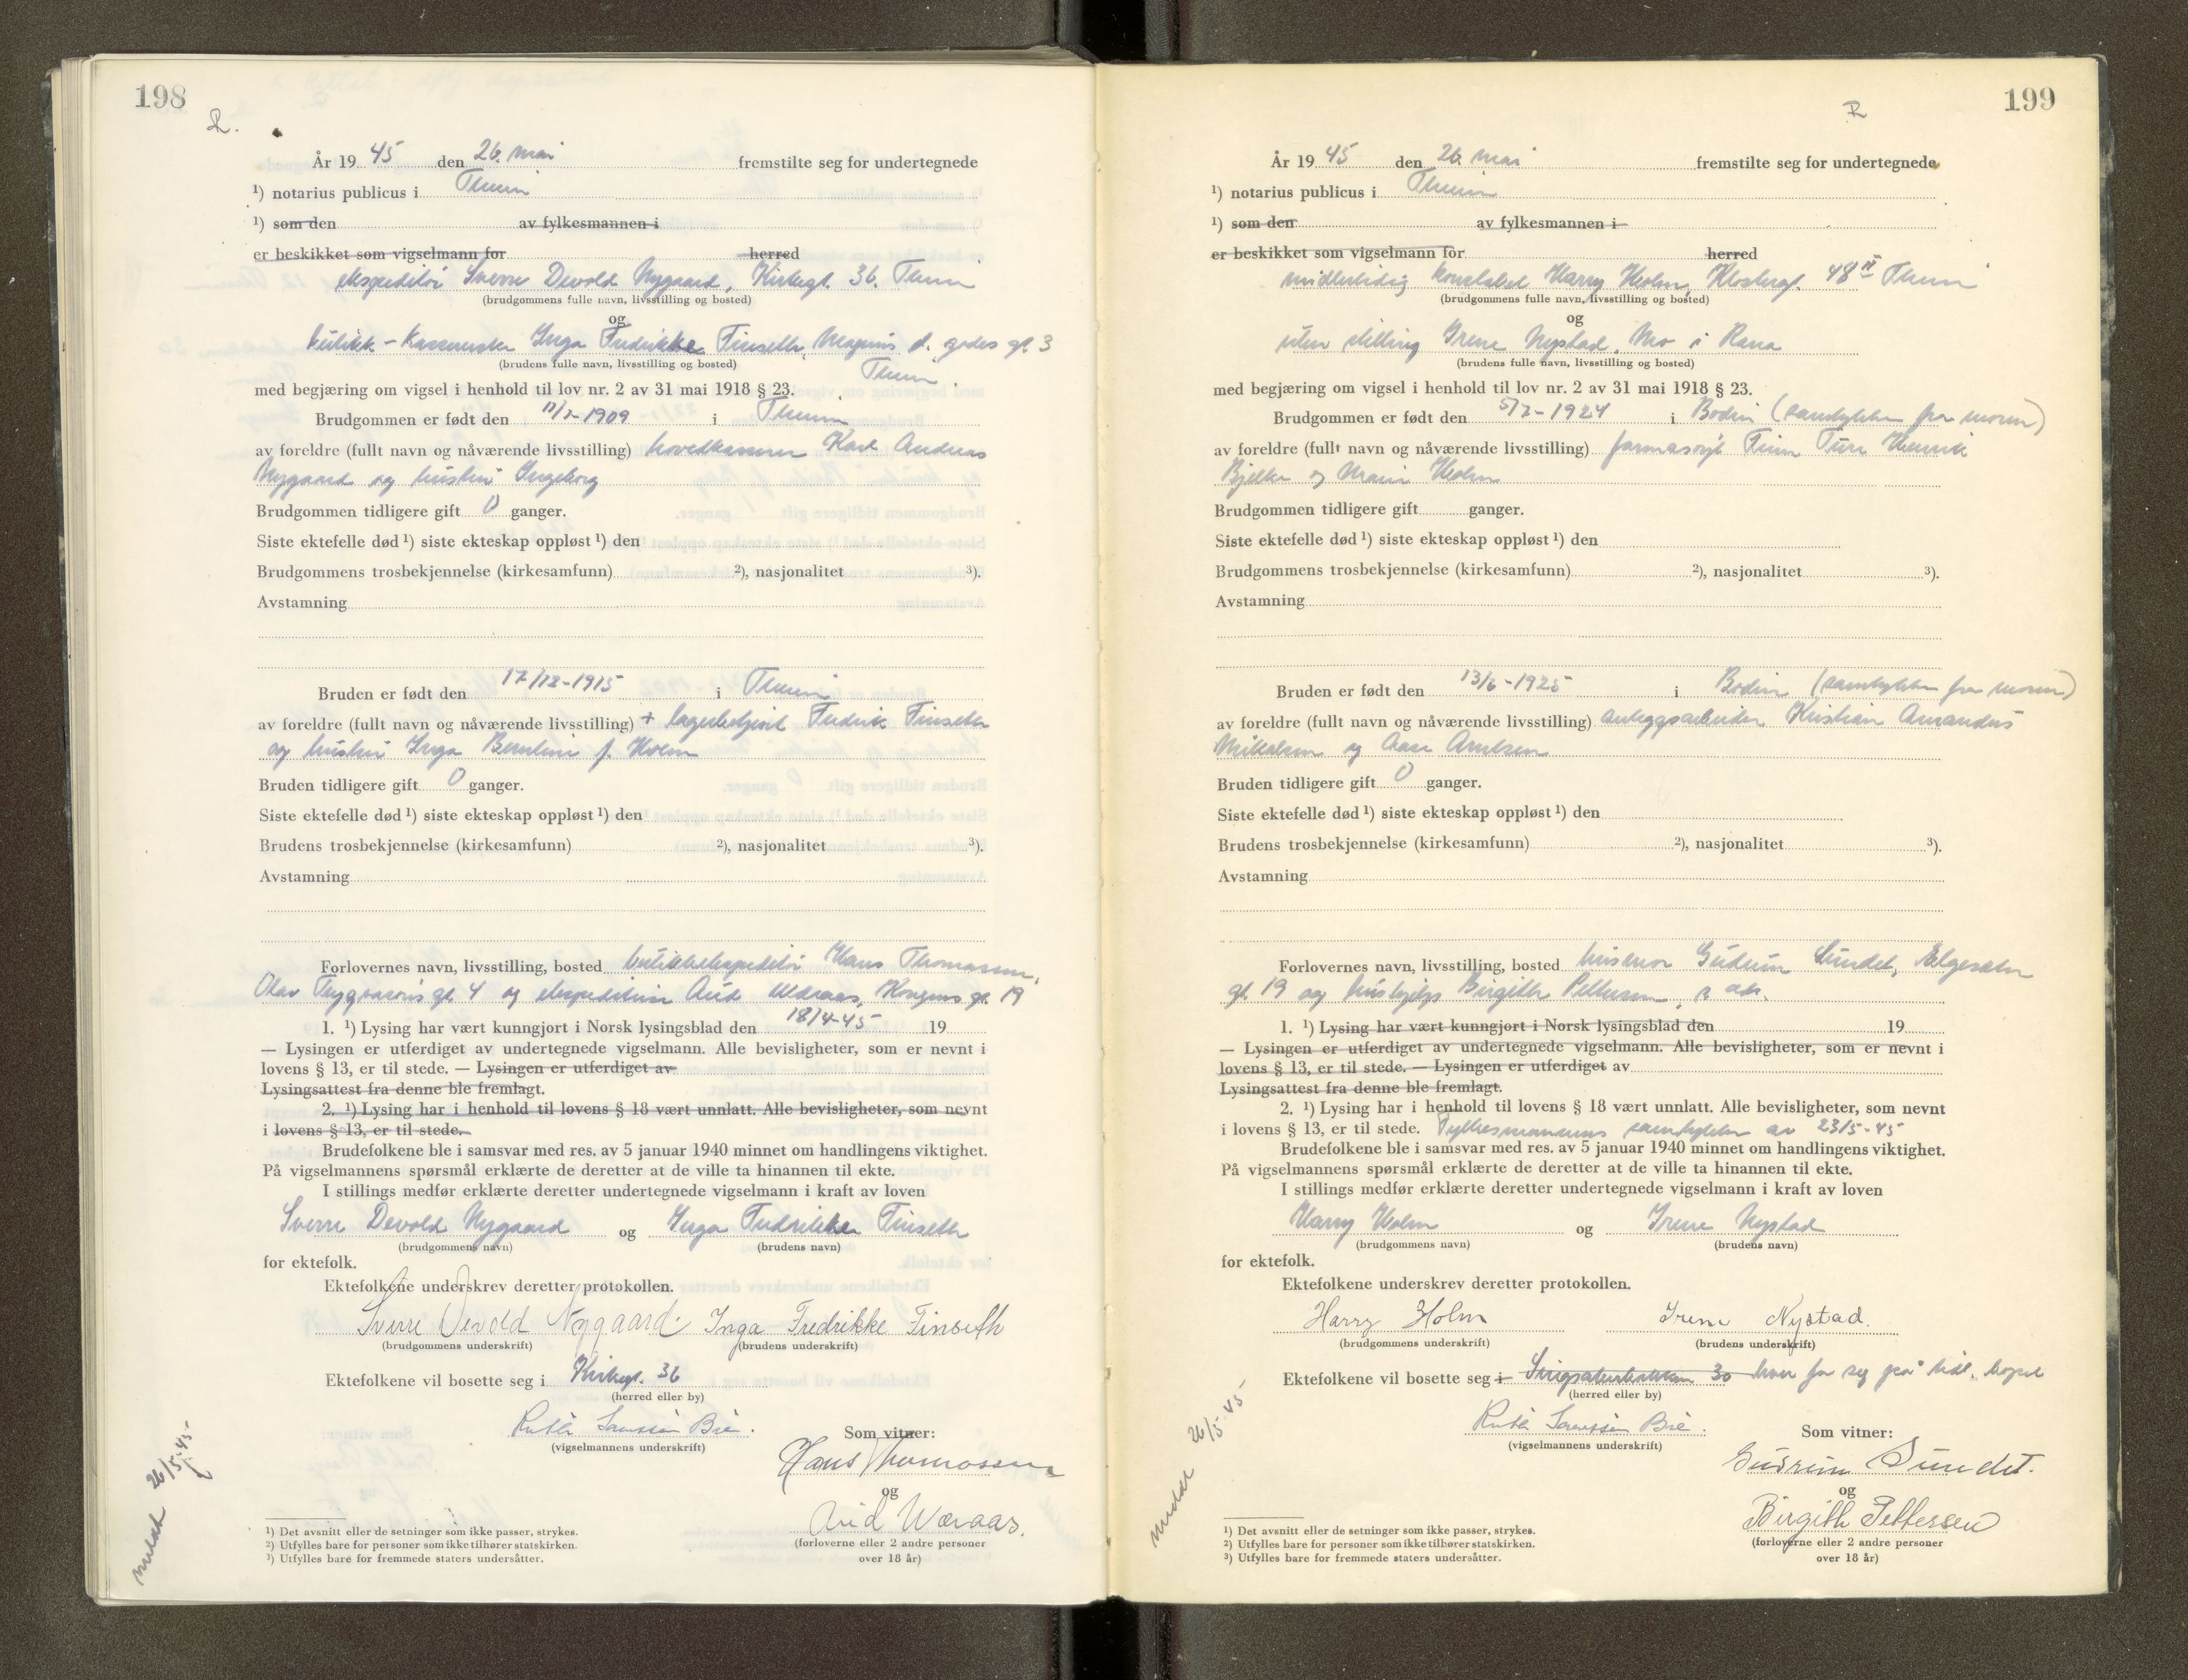 198
R.
År 19 45 den 26. mai fremstilte seg for undertegnede
¹) notarius publicus i Thrm
¹) som den av fylkesmannen i
er beskikket som vigselmann for herred
ekspeditør Sverre Devold Nygaard, Kirkegt. 36. Thrm
(brudgommens fulle navn, livsstilling og bosted)
og
butikk-kasserske Inga Fredrikke Finseth, Magnus d. godes gt. 3
(brudens fulle navn, livsstilling og bosted)
Thrm.
med begjæring om vigsel i henhold til lov nr. 2 av 31 mai 1918 § 23.
Brudgommen er født den -1909 i Thrm
av foreldre (fullt navn og nåværende livsstilling) hovedkasserer Karl Andreas
Nygaard og hustru Ingeborg
Brudgommen tidligere gift 0 ganger.
Siste ektefelle død ¹) siste ekteskap oppløst ¹) den
Brudgommens trosbekjennelse (kirkesamfunn) ²), nasjonalitet ³).
Avstamning
Bruden er født den 17/12-1915 i Thrm
av foreldre (fullt navn og nåværende livsstilling) + lagerbetjent Fredrik Finseth
og hustru Inga Berntine f. Holm
Bruden tidligere gift 0 ganger.
Siste ektefelle død ¹) siste ekteskap oppløst ¹) den
Brudens trosbekjennelse (kirkesamfunn) ²), nasjonalitet ³).
Avstamning
Forlovernes navn, livsstilling, bosted butikkekspeditør Hans Thomassen,
Olav Tryggvasons gt. 4 og ekspeditrise Aud Wæraas, Kongens gt. 19
1. ¹) Lysing har vært kunngjort i Norsk lysingsblad den 18/4-45 19
— Lysingen er utferdiget av undertegnede vigselmann. Alle bevisligheter, som er nevnt i
lovens § 13, er til stede. — Lysingen er utferdiget av
Lysingsattest fra denne ble fremlagt.
2. ¹) Lysing har i henhold til lovens § 18 vært unnlatt. Alle bevisligheter, som nevnt
i lovens § 13, er til stede.
Brudefolkene ble i samsvar med res. av 5 januar 1940 minnet om handlingens viktighet.
På vigselmannens spørsmål erklærte de deretter at de ville ta hinannen til ekte.
I stillings medfør erklærte deretter undertegnede vigselmann i kraft av loven
Sverre Devold Nygaard og Inga Fredrikke Finseth
(brudgommens navn) (brudens navn)
for ektefolk.
Ektefolkene underskrev deretter protokollen.
Sverre Devold Nygaard. Inga Fredrikke Finseth
(brudgommens underskrift) (brudens underskrift)
Ektefolkene vil bosette seg i Kirkegt. 36
(herred eller by)
Ruth Sonssen Bie.
(vigselmannens underskrift)
Som vitner:
Hans Thomassen
og
Aud Wæraas.
(forloverne eller 2 andre personer
over 18 år)
meldt 26/5-45
¹) Det avsnitt eller de setninger som ikke passer, strykes.
²) Utfylles bare for personer som ikke tilhører statskirken.
³) Utfylles bare for fremmede staters undersåtter.
199
R
År 19 45 den 26 mai fremstilte seg for undertegnede
¹) notarius publicus i Thrm
¹) som den av fylkesmannen i
er beskikket som vigselmann for herred
midlertidig konstabel Harry Holm, Klostergt. 48 II Thrm
(brudgommens fulle navn, livsstilling og bosted)
og
uten stilling Irene Nystad, Mo i Rana
(brudens fulle navn, livsstilling og bosted)
med begjæring om vigsel i henhold til lov nr. 2 av 31 mai 1918 § 23.
Brudgommen er født den 5/7-1924 i Bodin (samtykke fra moren)
av foreldre (fullt navn og nåværende livsstilling) farmasøyt Finn Ture Henrik
Bjelke og Marie Holm
Brudgommen tidligere gift ganger.
Siste ektefelle død ¹) siste ekteskap oppløst ¹) den
Brudgommens trosbekjennelse (kirkesamfunn) ²), nasjonalitet ³).
Avstamning
Bruden er født den 13/6-1925 i Bodin (samtykke fra moren)
av foreldre (fullt navn og nåværende livsstilling) anleggsarbeider Kristian Amandus
Mikalsen og Aase Arntsen
Bruden tidligere gift 0 ganger.
Siste ektefelle død ¹) siste ekteskap oppløst ¹) den
Brudens trosbekjennelse (kirkesamfunn) ²), nasjonalitet ³).
Avstamning
Forlovernes navn, livsstilling, bosted husmor Gudrun Sundet, Elgeseter
gt. 19 og hushjelp Birgith Pettersen, s adr.
1. ¹) Lysing har vært kunngjort i Norsk lysingsblad den 19
— Lysingen er utferdiget av undertegnede vigselmann. Alle bevisligheter, som er nevnt i
lovens § 13, er til stede. — Lysingen er utferdiget av
Lysingsattest fra denne ble fremlagt.
2. ¹) Lysing har i henhold til lovens § 18 vært unnlatt. Alle bevisligheter, som nevnt
i lovens § 13, er til stede. Fylkesmannens samtykke av 23/5-45
Brudefolkene ble i samsvar med res. av 5 januar 1940 minnet om handlingens viktighet.
På vigselmannens spørsmål erklærte de deretter at de ville ta hinannen til ekte.
I stillings medfør erklærte deretter undertegnede vigselmann i kraft av loven
Harry Holm og Irene Nystad
(brudgommens navn) (brudens navn)
for ektefolk.
Ektefolkene underskrev deretter protokollen.
Harry Holm Irene Nystad.
(brudgommens underskrift) (brudens underskrift)
Ektefolkene vil bosette seg i 30 hver for seg på tidl. bopel
(herred eller by)
Ruth Sonssen Bie.
(vigselmannens underskrift)
Som vitner:
Gudrun Sundet.
og
Birgith Pettersen
(forloverne eller 2 andre personer
over 18 år)
meldt 26/5-45
¹) Det avsnitt eller de setninger som ikke passer, strykes.
²) Utfylles bare for personer som ikke tilhører statskirken.
³) Utfylles bare for fremmede staters undersåtter.